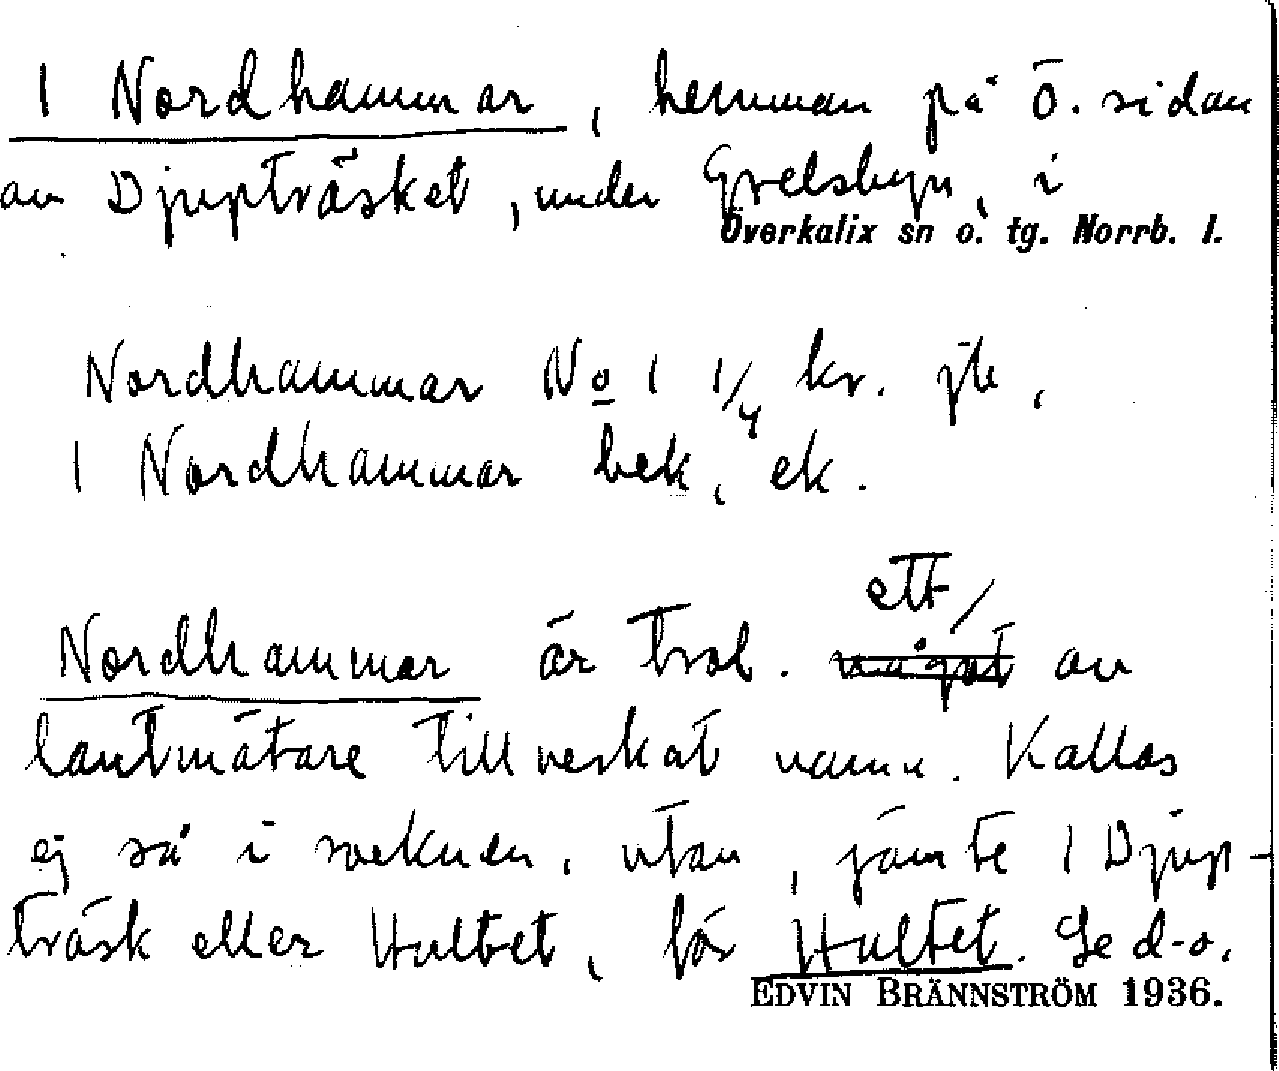 1 Nordhammar, hemman på ö. sidan
av Djupträsket, under Grelsbyn, i
Överkalix sn o. tg. Norrb. l.
Nordhammar No 1 1/4 kr. jb,
1 Nordhammar bek, ek.
ett/
Nordhammar är trol. något av
lantmätare tillverkat namn. Kallas
ej så i socknen, utan, jämte 1 Djup-
träsk eller Hultet, för Hultet. Se d-o.
EDVIN BRÄNNSTRÖM 1936.